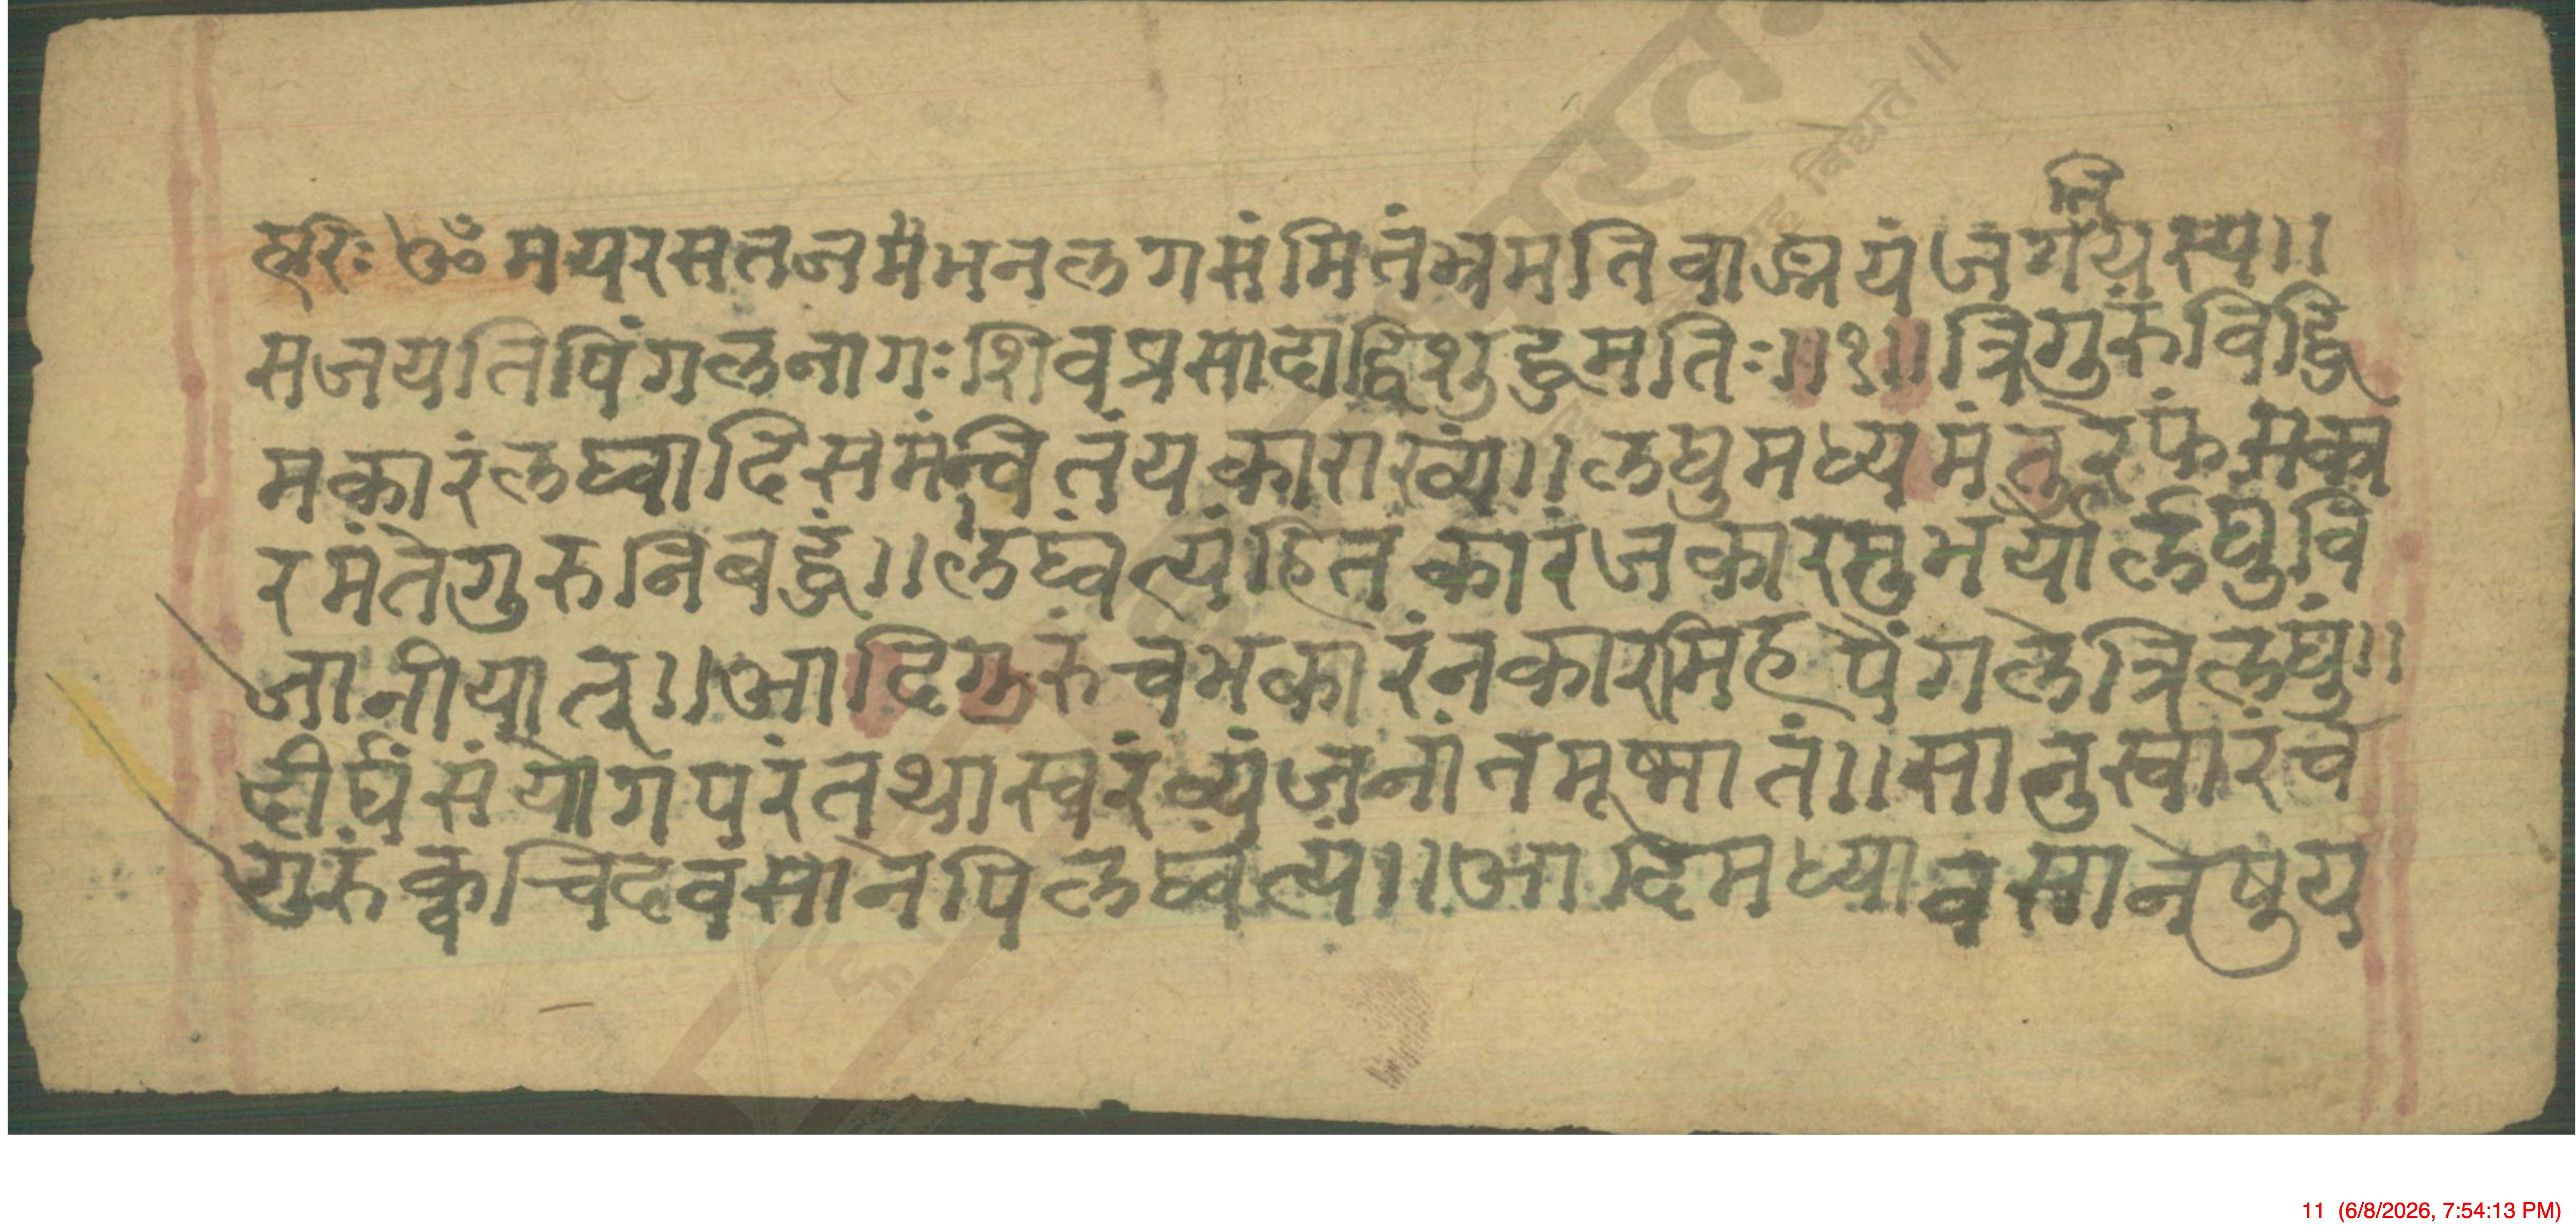 हरिः ॐ मयरसतजभैभनलगसंमितंभ्रमतिवाङ्मयंजगतियस्य।।
सजयतिपिंगलनागःशिवप्रसादाद्विशुद्धमतिः।।१।।त्रिगुरुंविद्धि
मकारंलघ्वादिसमंन्वितंयकाराख्यं।।लघुमध्यमंतुरेफंसका
रमंतेगुरुनिबद्धं।।लघ्वंत्यंहितकारंजकारमुभयोर्लघुंवि
जानीयात्।।आदिगुरुंचभकारंनकारमिहपैंगलेत्रिलघुं।।
दीर्घंसंयोगपरंतथास्वरंव्यंजनांतमूष्मातं।।सानुस्वारंच
गुरुंक्वचिदवसानेपिलघ्वंत्यं।।आदिमध्यावसानेषुय
11 (6/8/2026, 7:54:13 PM)